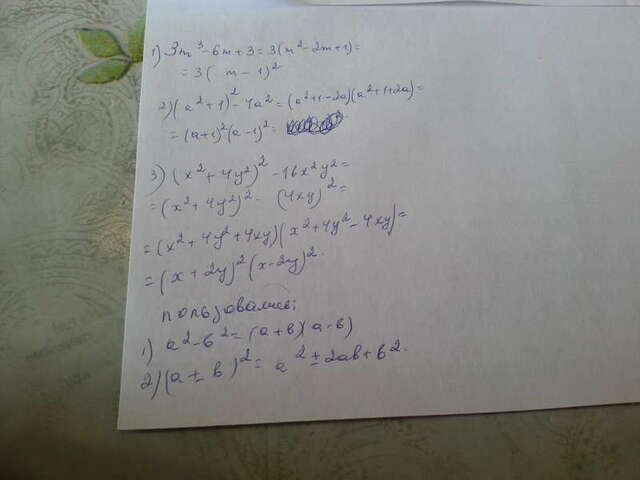 1) 3m³-6m+3=3(m²-2m+1)=
=3( m-1)²
2)(a²+1)²-4a²=(a²+1-2a)(a²+1+2a)=
=(a+1)²(a-1)²=
3) (x²+4y²)²-16x²y²=
=(x²+4y²)²- (4xy)²=
=(x²+4y²+4xy)(x²+4y²-4xy)=
=(x+2y)²(x-2y)².
пользовались:
1) a²-b²=(a+b)(a-b)
2)(a±b)²=a²±2ab+b².